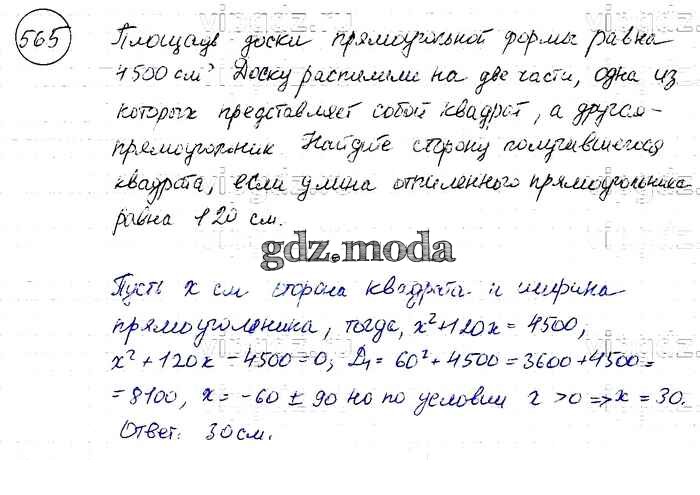 565
Площадь доски прямоугольной формы равна
4500 см² Доску распилили на две части, одна из
которых представляет собой квадрат, а другая -
прямоугольник Найдите сторону получившегося
квадрата, если длина отпиленного прямоугольника
равна 120 см.
gdz.moda
Пусть x см сторона квадрата и ширина
прямоугольника, тогда, x²+120x = 4500,
x² + 120x - 4500 = 0; D₁ = 60² + 4500 = 3600 + 4500 =
= 8100, x = -60 ± 90 но по условии x > 0 => x = 30.
Ответ: 30 см.